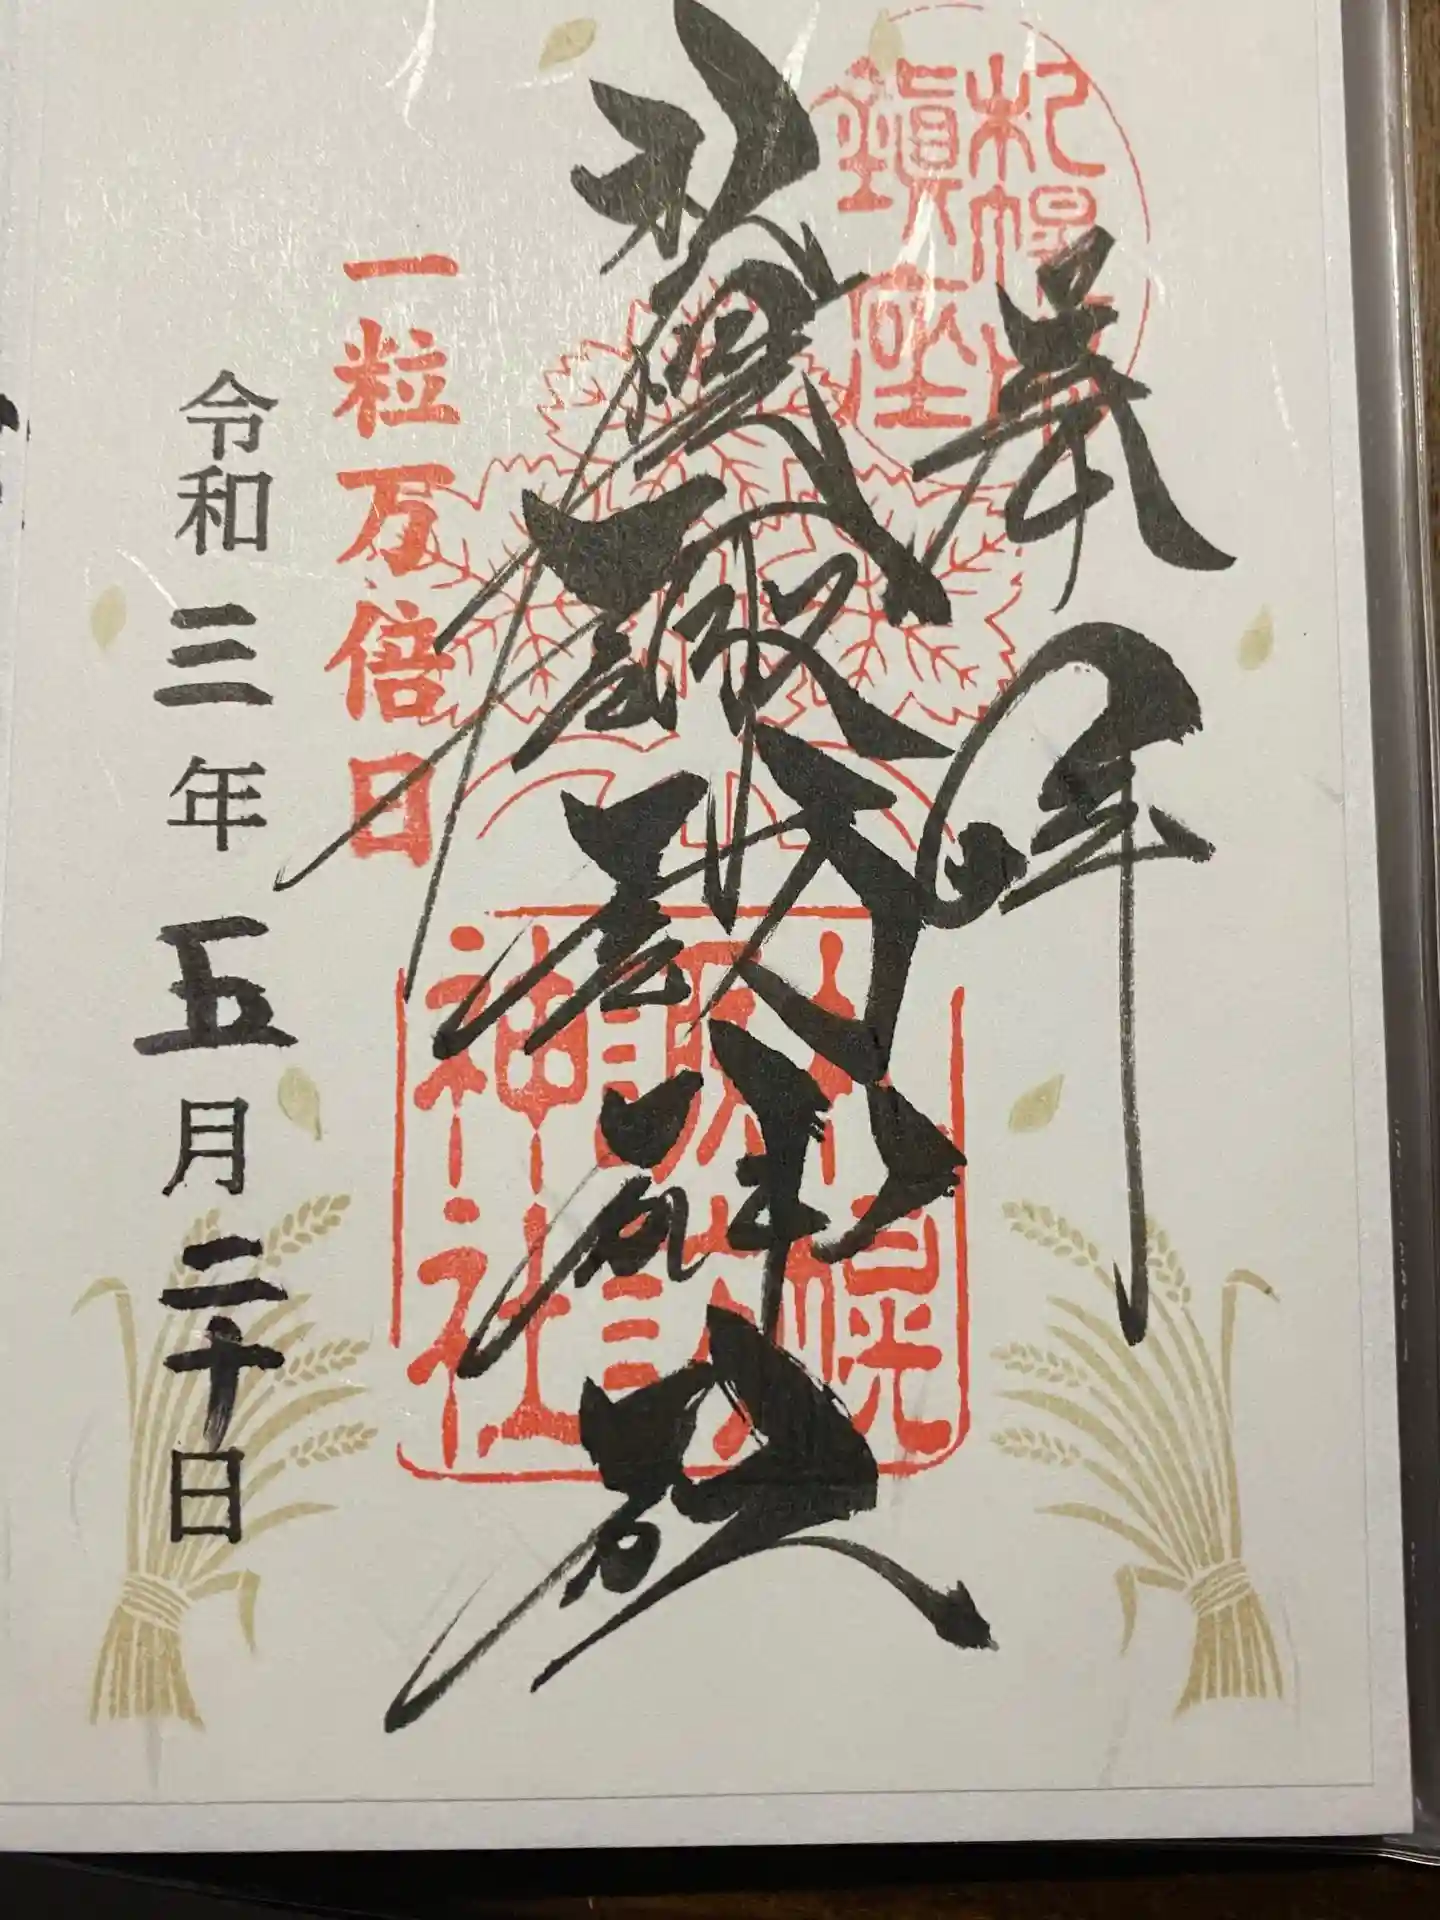 札幌
鎮座
奉拝
札幌諏訪神社
札幌
諏訪
神社
一粒万倍日
令和三年五月二十日